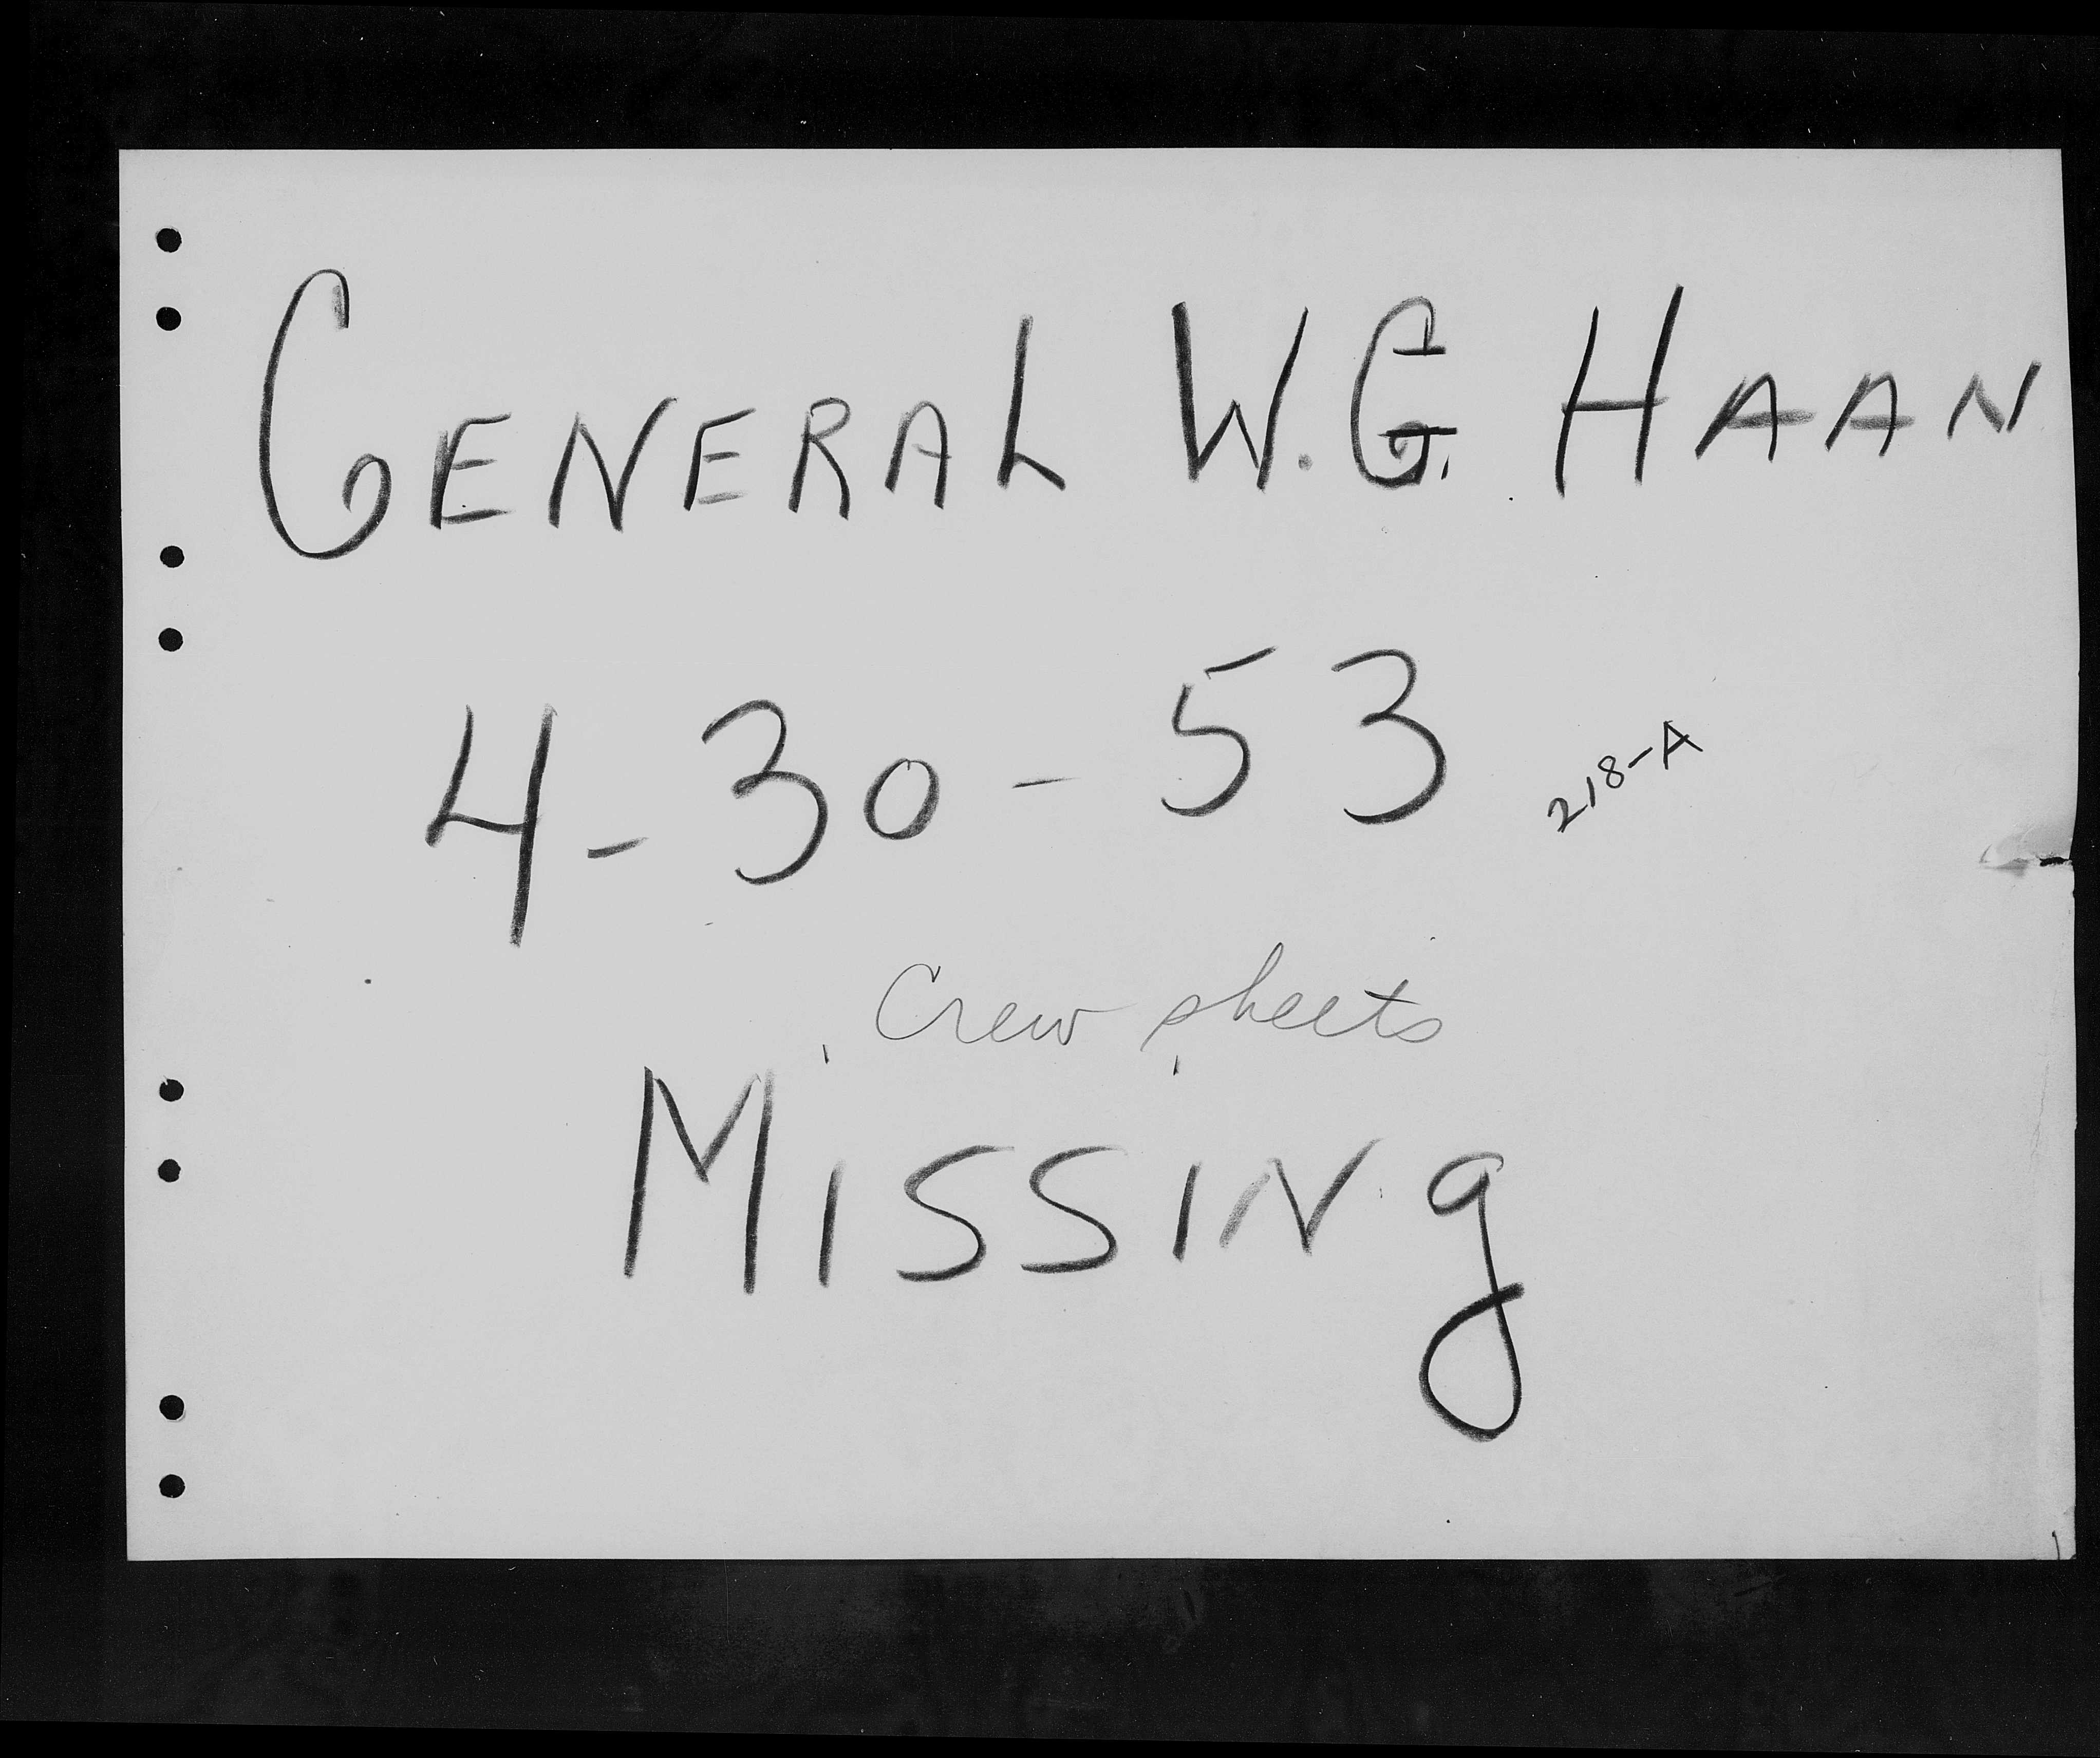 GENERAL W.G. HAAN
4-30-53
218-A
Crew sheets
MISSINg